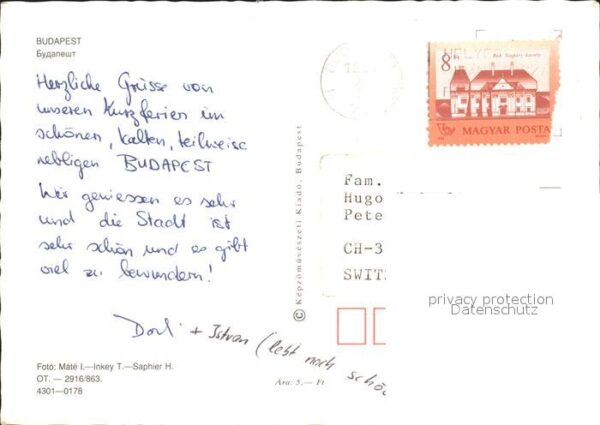 BUDAPEST
Будапешт
Herzliche Grüsse von
unseren Kurzferien im
schönen, kalten, teilweise
nebligen BUDAPEST
Wir geniessen es sehr
und die Stadt ist
sehr schön und es gibt
viel zu bewundern!
+ Istvan (lebt noch schö
Fotó: Máté I.—Inkey T.—Saphier H.
OT. — 2916/863.
4301—0178
Ára: 5,— Ft
© Képzőművészeti Kiadó, Budapest
8 Ft
MAGYAR POSTA
Fam.
Hugo
Pete
CH-3
SWIT
privacy protection
Datenschutz